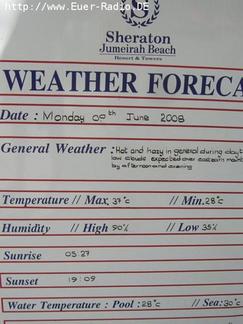 http://www.Euer-Radio.DE
Sheraton
Jumeirah Beach
Resort & Towers
WEATHER FORECA
Date : Monday 09th June 2008
General Weather : Hot and hazy in general during dayt
low clouds expected over eastern
by afternoon and evening
Temperature // Max. 37°c // Min. 28°c
Humidity // High 90% // Low 35%
Sunrise 05:27
Sunset 19:09
Water Temperature : Pool : 28°c // Sea: 30°c